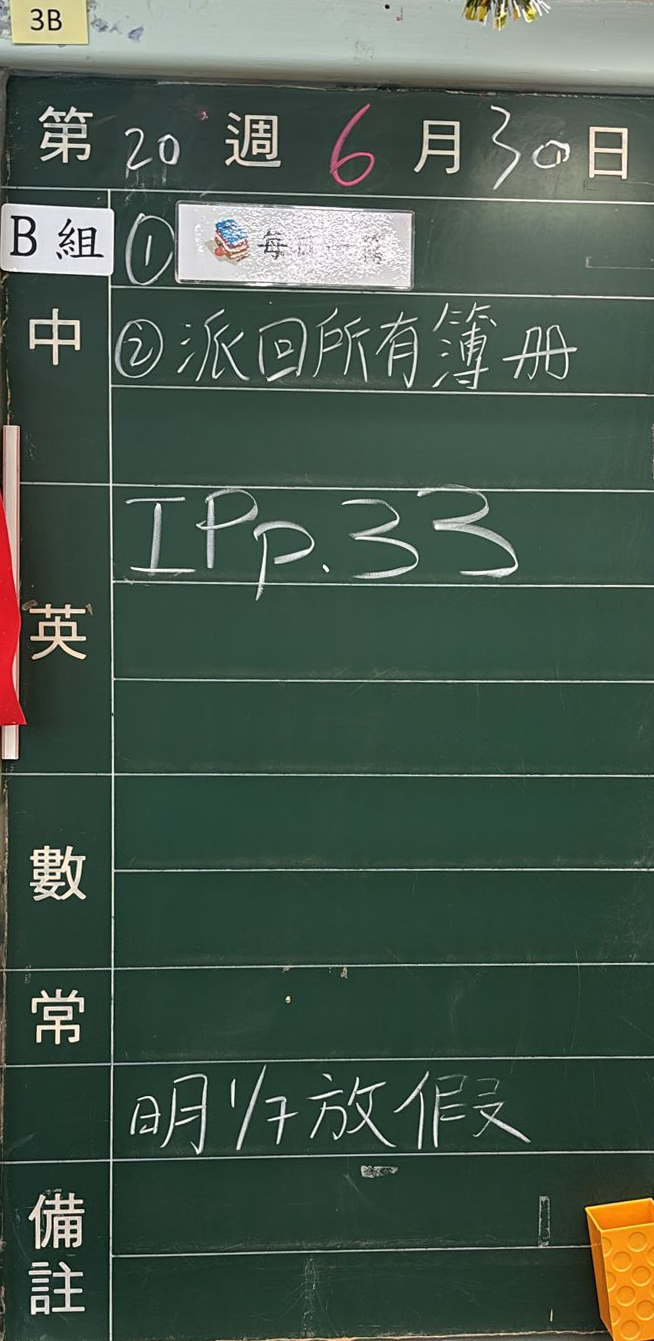 3B
第 20 週 6 月 30 日
B 組 ① 每日一篇
中 ② 派回所有簿冊
英 IP p.33
數
常
明 1/7 放假
備註